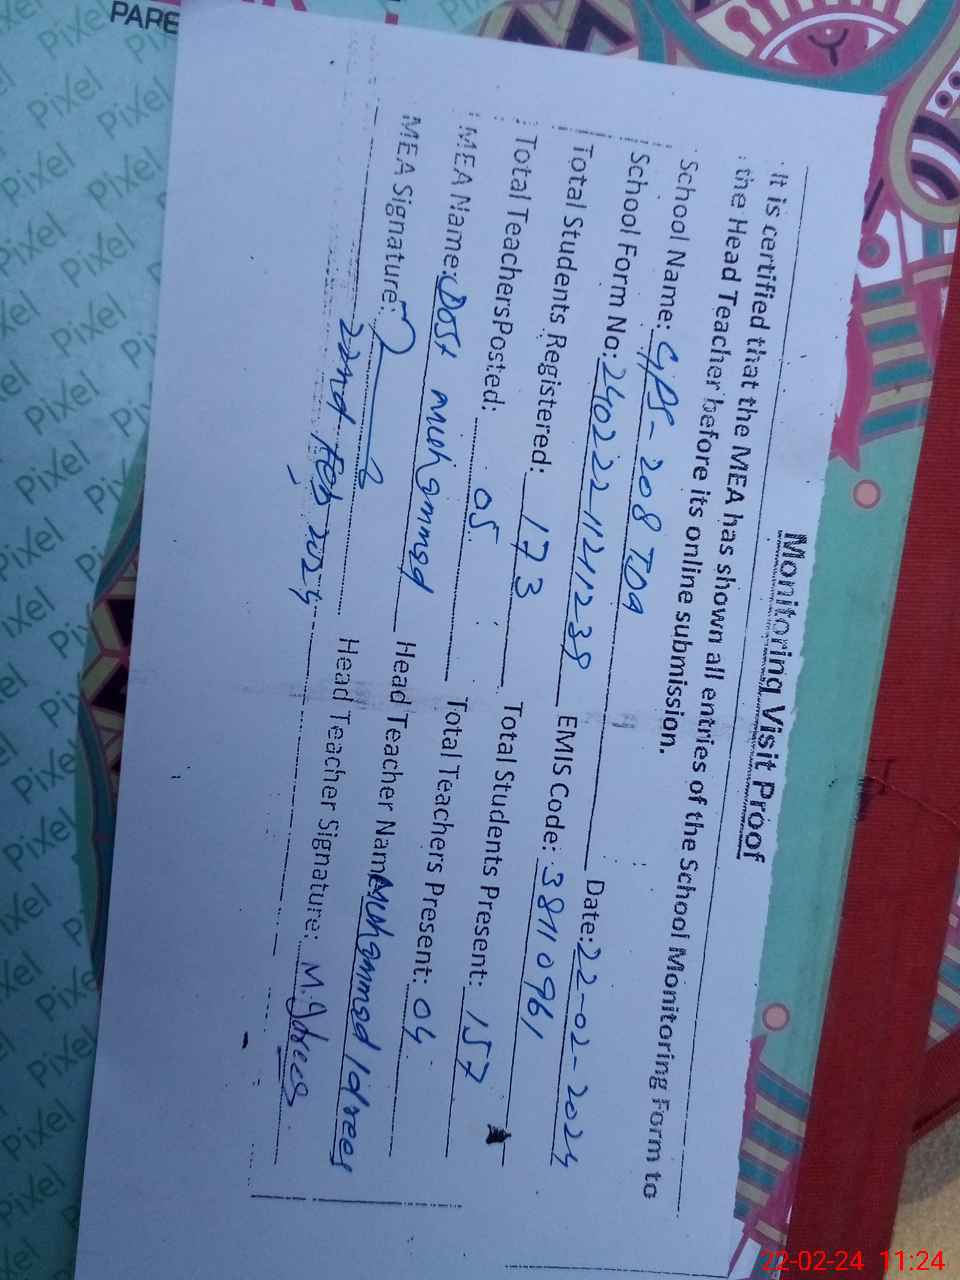 Monitoring Visit Proof
It is certified that the MEA has shown all entries of the School Monitoring Form to
the Head Teacher before its online submission.
School Name: GPS-208 TDA Date: 22-02-2024
School Form No: 240222-11211238 EMIS Code: 38110961
Total Students Registered: 173 Total Students Present: 157
Total TeachersPosted: 05 Total Teachers Present: 04
MEA Name: Dost Muhammad Head Teacher Name Muhammad Idrees
MEA Signature: Head Teacher Signature: M. Idrees
22nd Feb 2024
PARE
Pixel
22-02-24 11:24